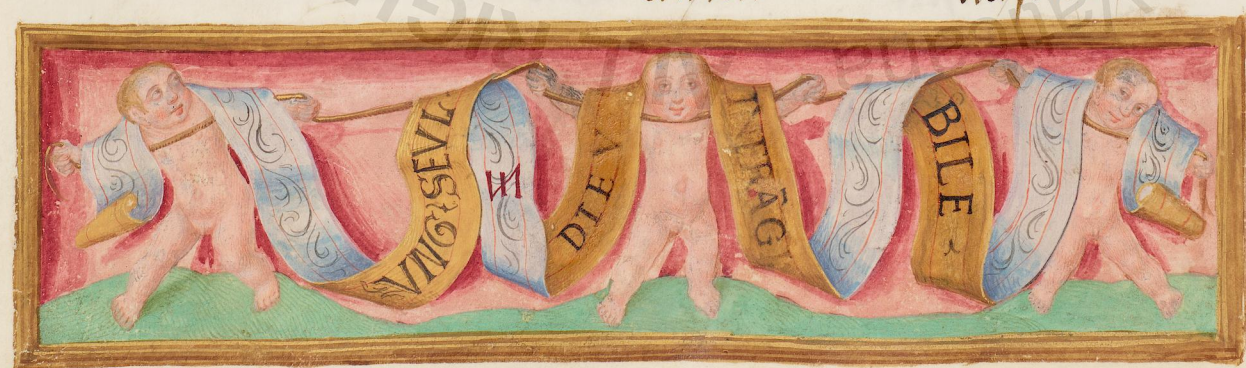 VNG SEVL DIEV INFRĀGI BILE